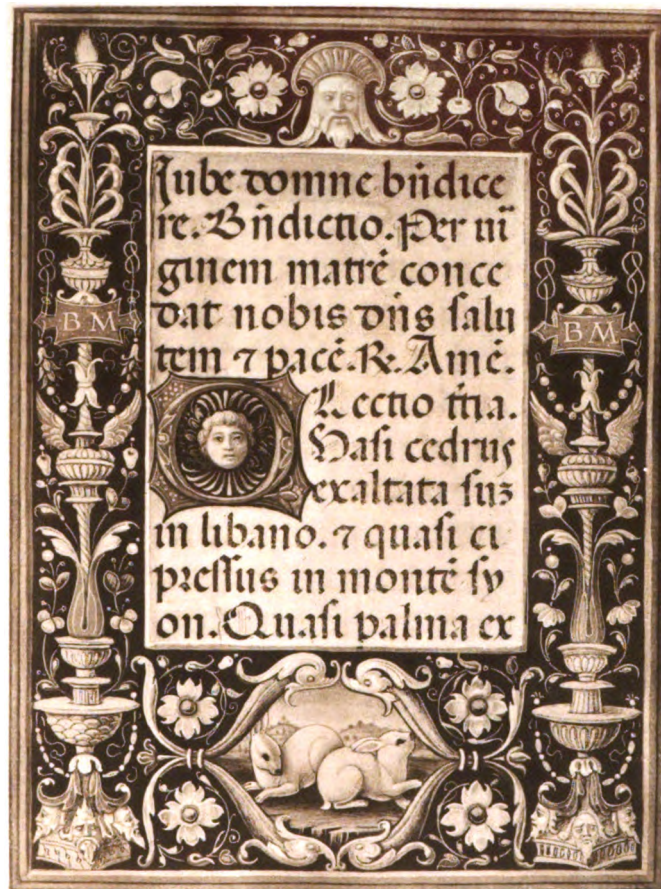 Iube domne bn̄dice
re. Bn̄dictio. Per vir̄
ginem matrē conce
dat nobis dn̄s salu
tem ⁊ pacē. R̷. Amē.
Lectio t̄ia.
Quasi cedrus
exaltata suꝫ
in libano. ⁊ quasi ci
pressus in montē sy
on. Quasi palma ex
BM
BM